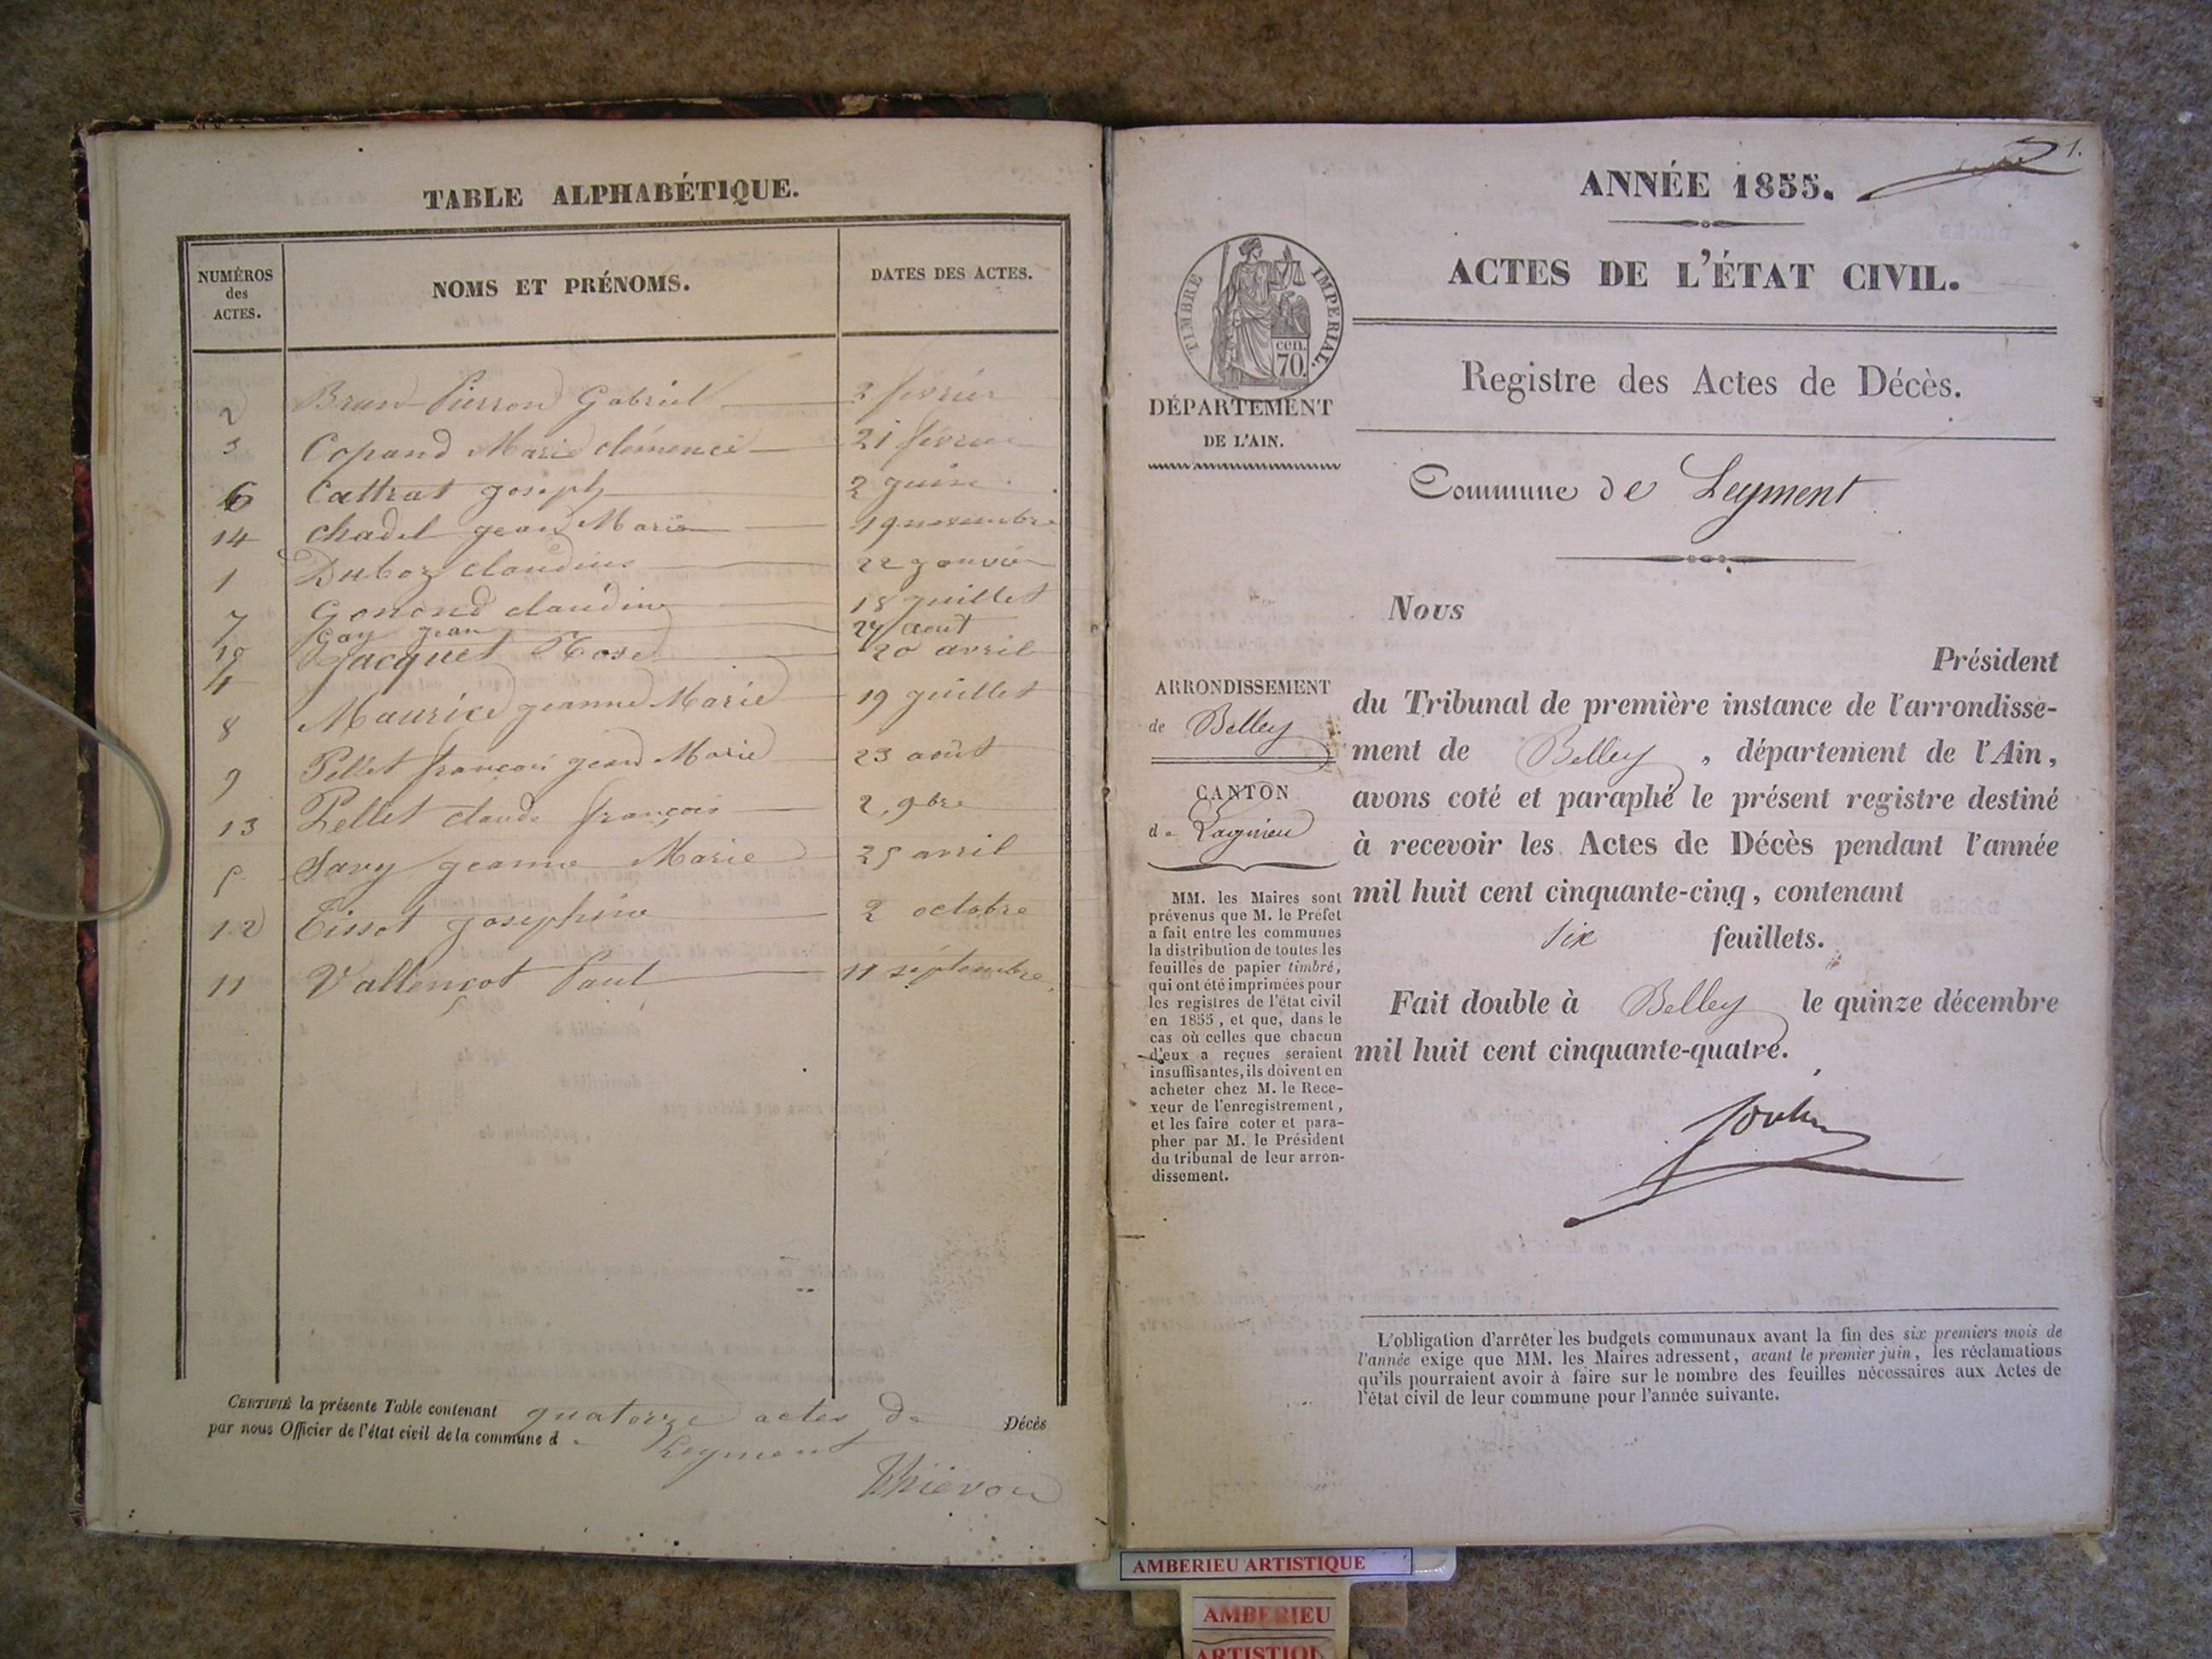 TABLE ALPHABÉTIQUE.
NUMÉROS des ACTES. NOMS ET PRÉNOMS. DATES DES ACTES.
2 Brun-Pierron Gabriel 2 fevrier
3 Copand Marie clémence 21 fevrier
6 Cattrat joseph 2 juin
14 chadel jean Marie 19 novembre
1 Duboz claudius 22 janvier
7 Gonond claudine 18 juillet
10 Gay jean 24 août
4 Jacquet Rose 20 avril
8 Maurice jeanne Marie 19 juillet
9 Pellet françois jean Marie 23 août
13 Pellet claude françois 2, 9bre
5 Savy jeanne Marie 25 avril
12 Tissot josephine 2 octobre
11 Vallençot Paul 11 septembre
CERTIFIÉ la présente Table contenant quatorze actes de Décès
par nous Officier de l'état civil de la commune d Leyment
1.
ANNÉE 1855.
ACTES DE L'ÉTAT CIVIL.
TIMBRE IMPERIAL.
cen.
70.
Registre des Actes de Décès.
DÉPARTEMENT
DE L'AIN.
Commune de Leyment
Nous
Président
ARRONDISSEMENT
de Belley
CANTON
de Lagnieu
du Tribunal de première instance de l'arrondisse-
ment de Belley, département de l'Ain,
avons coté et paraphé le présent registre destiné
à recevoir les Actes de Décès pendant l'année
mil huit cent cinquante-cinq, contenant
six feuillets.
Fait double à Belley le quinze décembre
mil huit cent cinquante-quatre.
MM. les Maires sont
prévenus que M. le Préfet
a fait entre les communes
la distribution de toutes les
feuilles de papier timbré,
qui ont été imprimées pour
les registres de l'état civil
en 1855, et que, dans le
cas où celles que chacun
d'eux a reçues seraient
insuffisantes, ils doivent en
acheter chez M. le Rece-
veur de l'enregistrement,
et les faire coter et para-
pher par M. le Président
du tribunal de leur arron-
dissement.
L'obligation d'arrêter les budgets communaux avant la fin des six premiers mois de
l'année exige que MM. les Maires adressent, avant le premier juin, les réclamations
qu'ils pourraient avoir à faire sur le nombre des feuilles nécessaires aux Actes de
l'état civil de leur commune pour l'année suivante.
AMBERIEU ARTISTIQUE
AMBERIEU
ARTISTIQUE